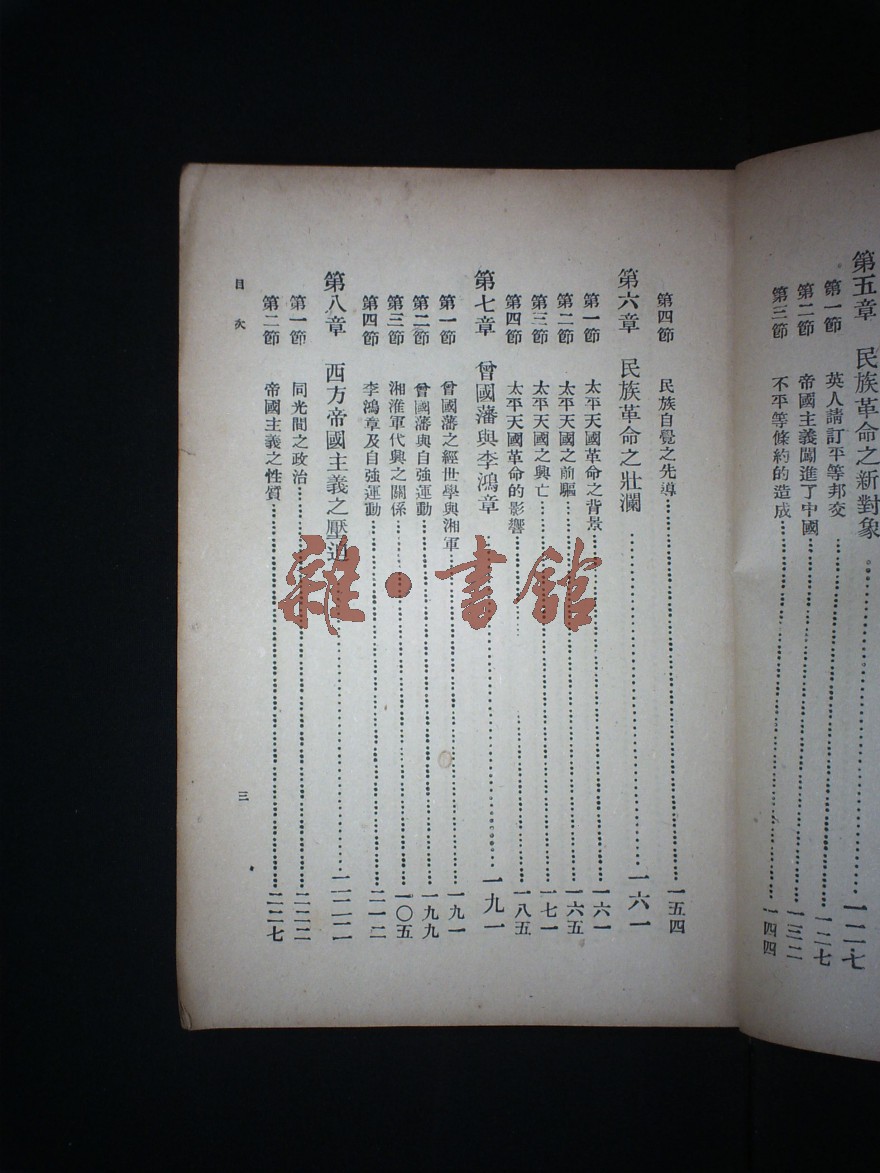 第五章　民族革命之新對象……一二七
第一節　英人請訂平等邦交……一二七
第二節　帝國主義闖進了中國……一三二
第三節　不平等條約的造成……一四四
第四節　民族自覺之先導……一五四
第六章　民族革命之壯瀾……一六一
第一節　太平天國革命之背景……一六一
第二節　太平天國之前驅……一六五
第三節　太平天國之興亡……一七一
第四節　太平天國革命的影響……一八五
第七章　曾國藩與李鴻章……一九一
第一節　曾國藩之經世學與湘軍……一九一
第二節　曾國藩與自強運動……一九九
第三節　湘淮軍代興之關係……二〇五
第四節　李鴻章及自強運動……二一二
第八章　西方帝國主義之壓迫……二二二
第一節　同光間之政治……二二二
第二節　帝國主義之性質……二二七
目次
三
雜·書館